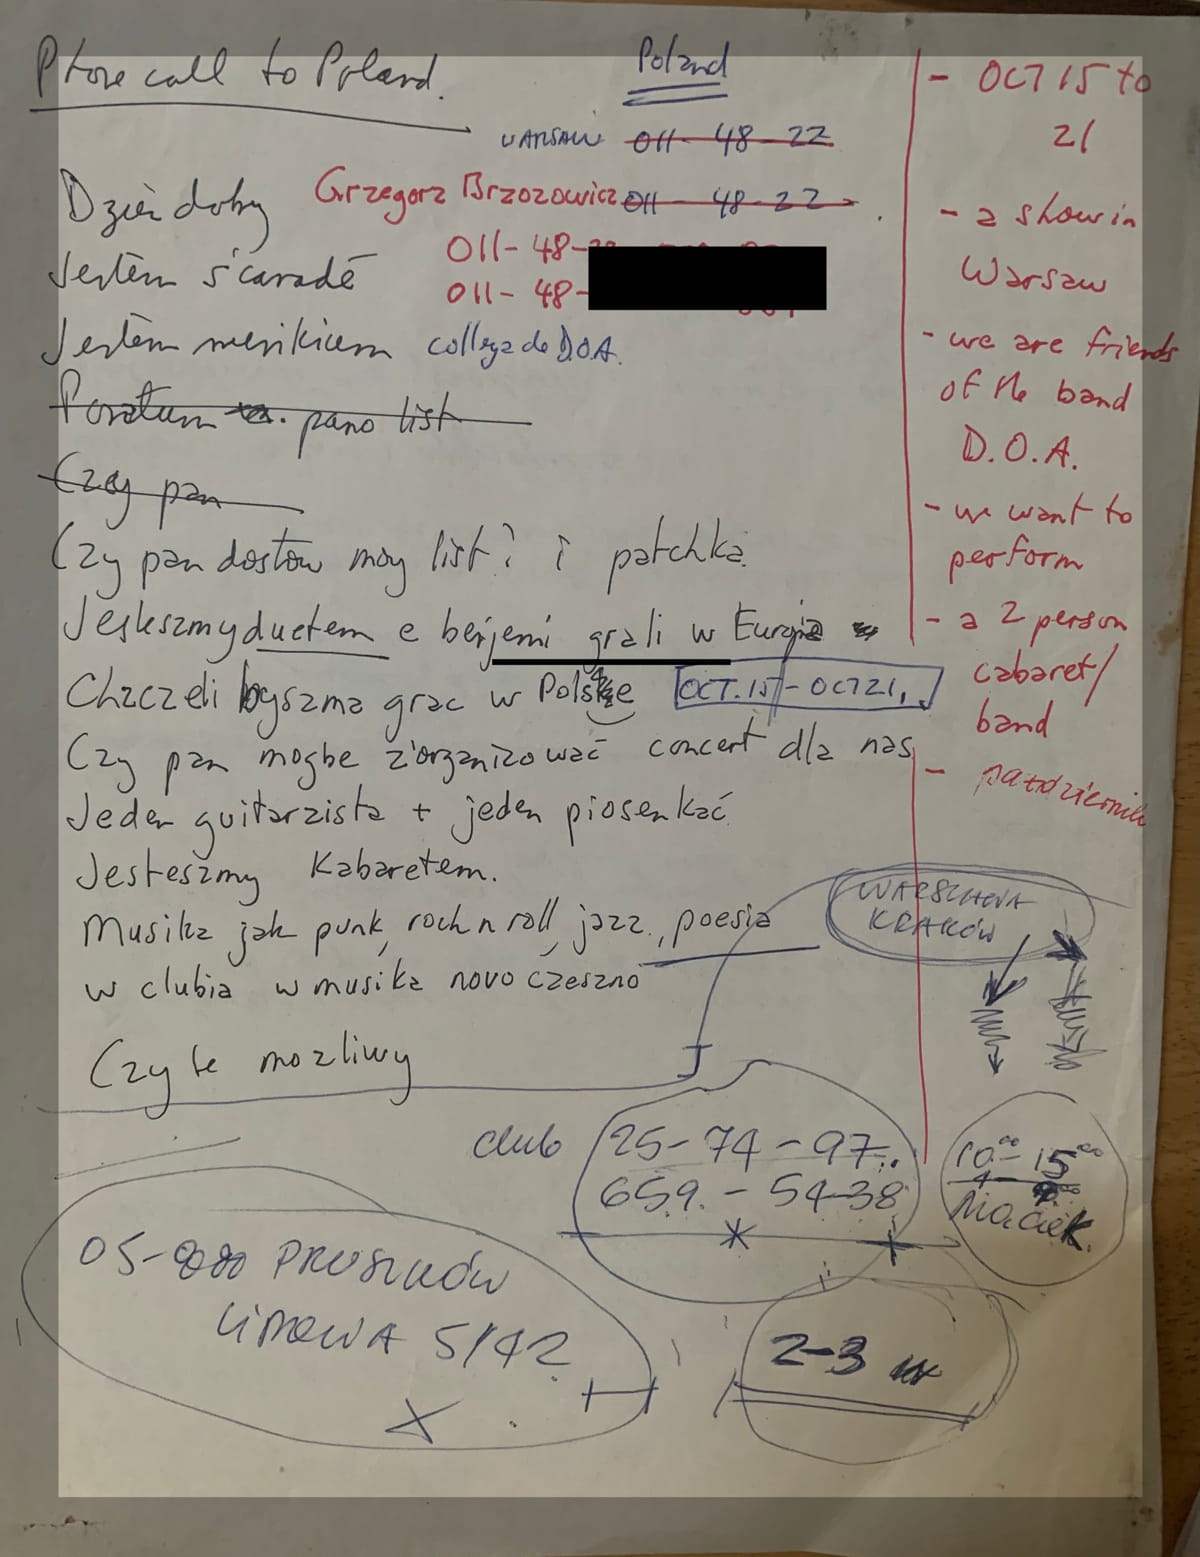 Phone call to Poland.
Poland
WARSAW 011 - 48 - 22
Dzień dobry
Grzegorz Brzozowicz 011 - 48 - 22
011 - 48 -
Jestem s'canadé
011 - 48 -
Jestem collega de D.O.A.
pano list
Czy pan
Czy pan dostow moy list? i patchka.
Jesteszmy duetem e berjemi grali w
Chczeli byszma grac w Polske OCT. 15 - OCT 21.
Czy pan mogbe z'organizować concert dla nas
Jeden guitarzista + jeden piosenkać
Jesteszmy Kabaretem.
Musika jak punk, rock n roll, jazz, poesia
w clubia w musika novo czeszno
Czy te mozliwy
- OCT 15 to
21
- a show in
Warsaw
- we are friends
of the band
D.O.A.
- we want to
perform
- a 2 person
cabaret/
band
- patdziernik
WARSZAWA
KRAKÓW
club 25 - 74 - 97
659 - 54-38
10⁰⁰ - 15⁰⁰
Maciek.
05- PRUSZKÓW
LIPOWA 5/42
2-3